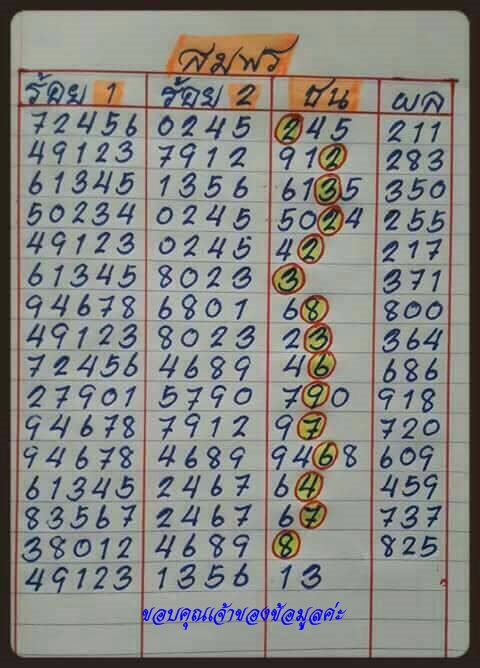 สมพร
ร้อย 1 ร้อย 2 ชน ผล
72456 0245 245 211
49123 7912 912 283
61345 1356 6135 350
50234 0245 5024 255
49123 0245 42 217
61345 8023 3 371
94678 6801 68 800
49123 8023 23 364
72456 4689 46 686
27901 5790 790 918
94678 7912 97 720
94678 4689 9468 609
61345 2467 64 459
83567 2467 67 737
38012 4689 8 825
49123 1356 13
ขอบคุณเจ้าของข้อมูลค่ะ